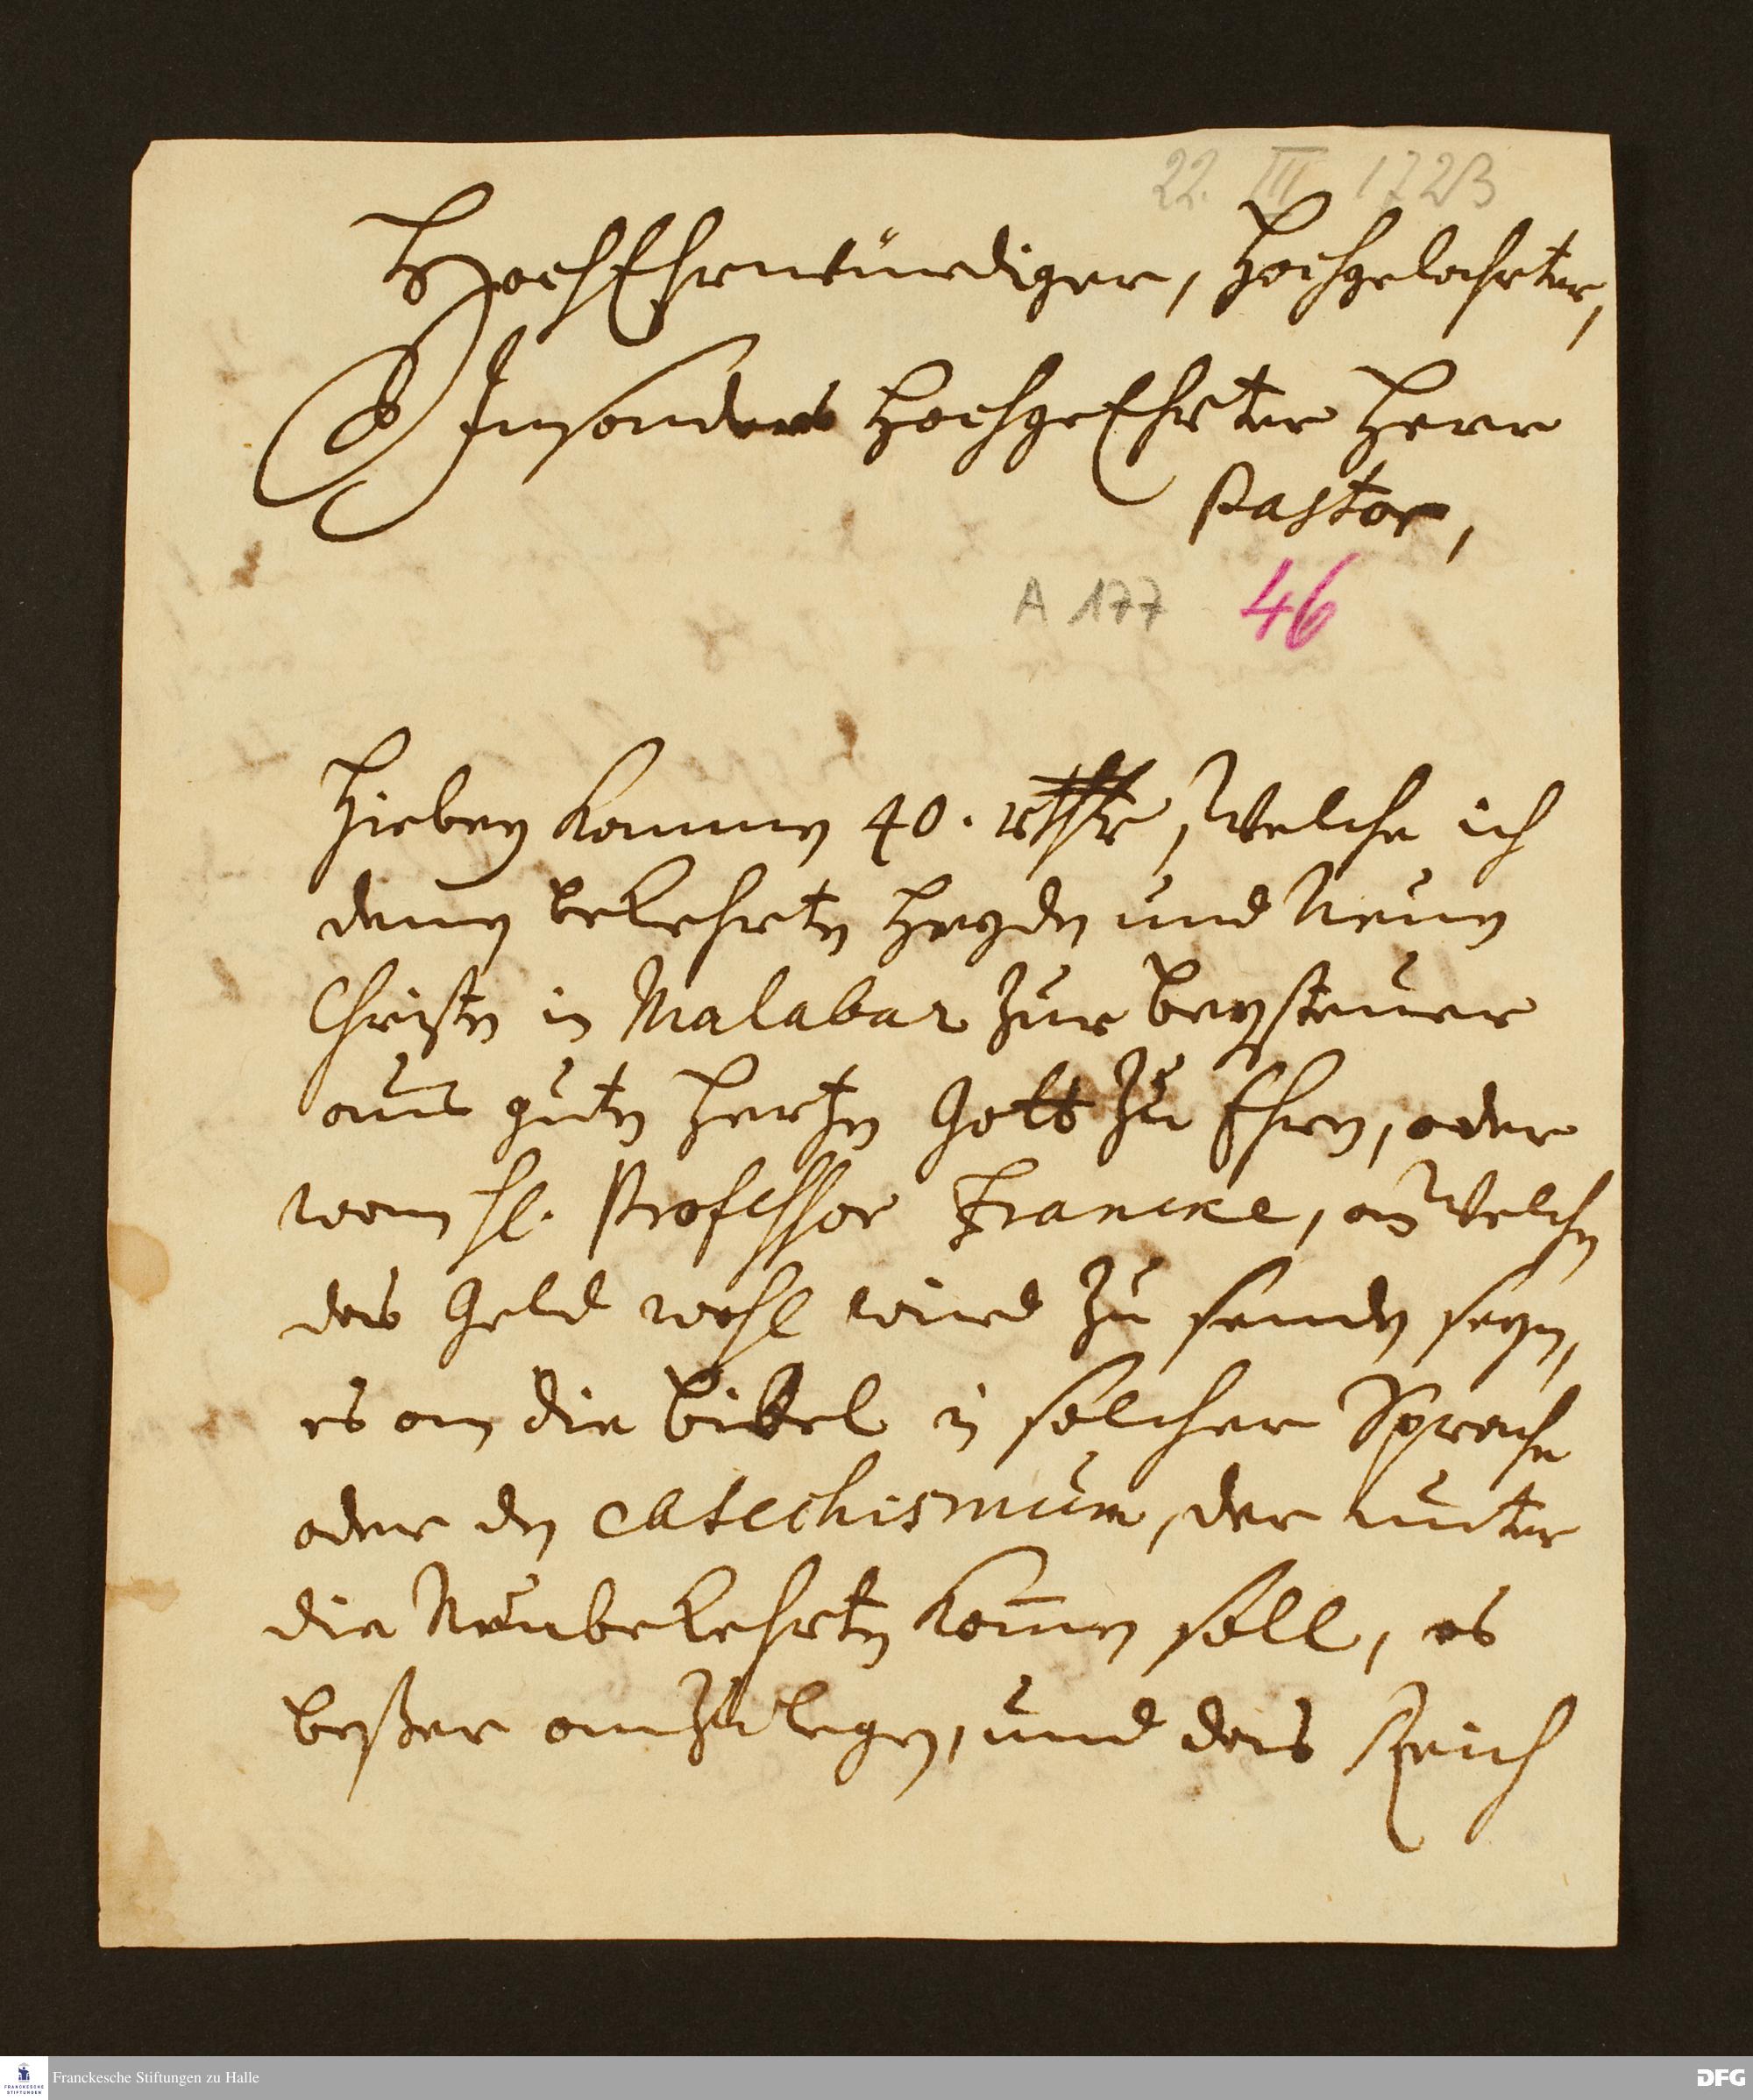 22. III 1723
HochEhrwürdiger, Hochgelahrter,
Insonders HochgeEhrter Herr
Pastor,
A 177 46
Hiebey kommen 40. rthlr, Welche ich
denen bekehrten Heyden und Neuen
Christen in Malabar zur beysteuer
aus guten Hertzen Gott zu Ehren, oder
wenn Hl. Professor Francke, an Welchen
das Geld wohl wird zu senden seyn,
es an die bibel in solcher Sprache
oder den Catechismum, der unter
die Neubekehrten kom̄en soll, es
beßer anzulegen, und das Reich
Franckesche Stiftungen zu Halle
FRANCKESCHE STIFTUNGEN
DFG